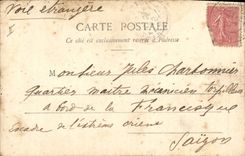 Voie etrangère
CARTE POSTALE
Ce côté est exclusivement réservé à l'adresse
Monsieur Jules Charbonnier
Quartier maitre mécanicien torpilleur
a bord de la Francisque
Escadre de l'extrême orient
Saïgon